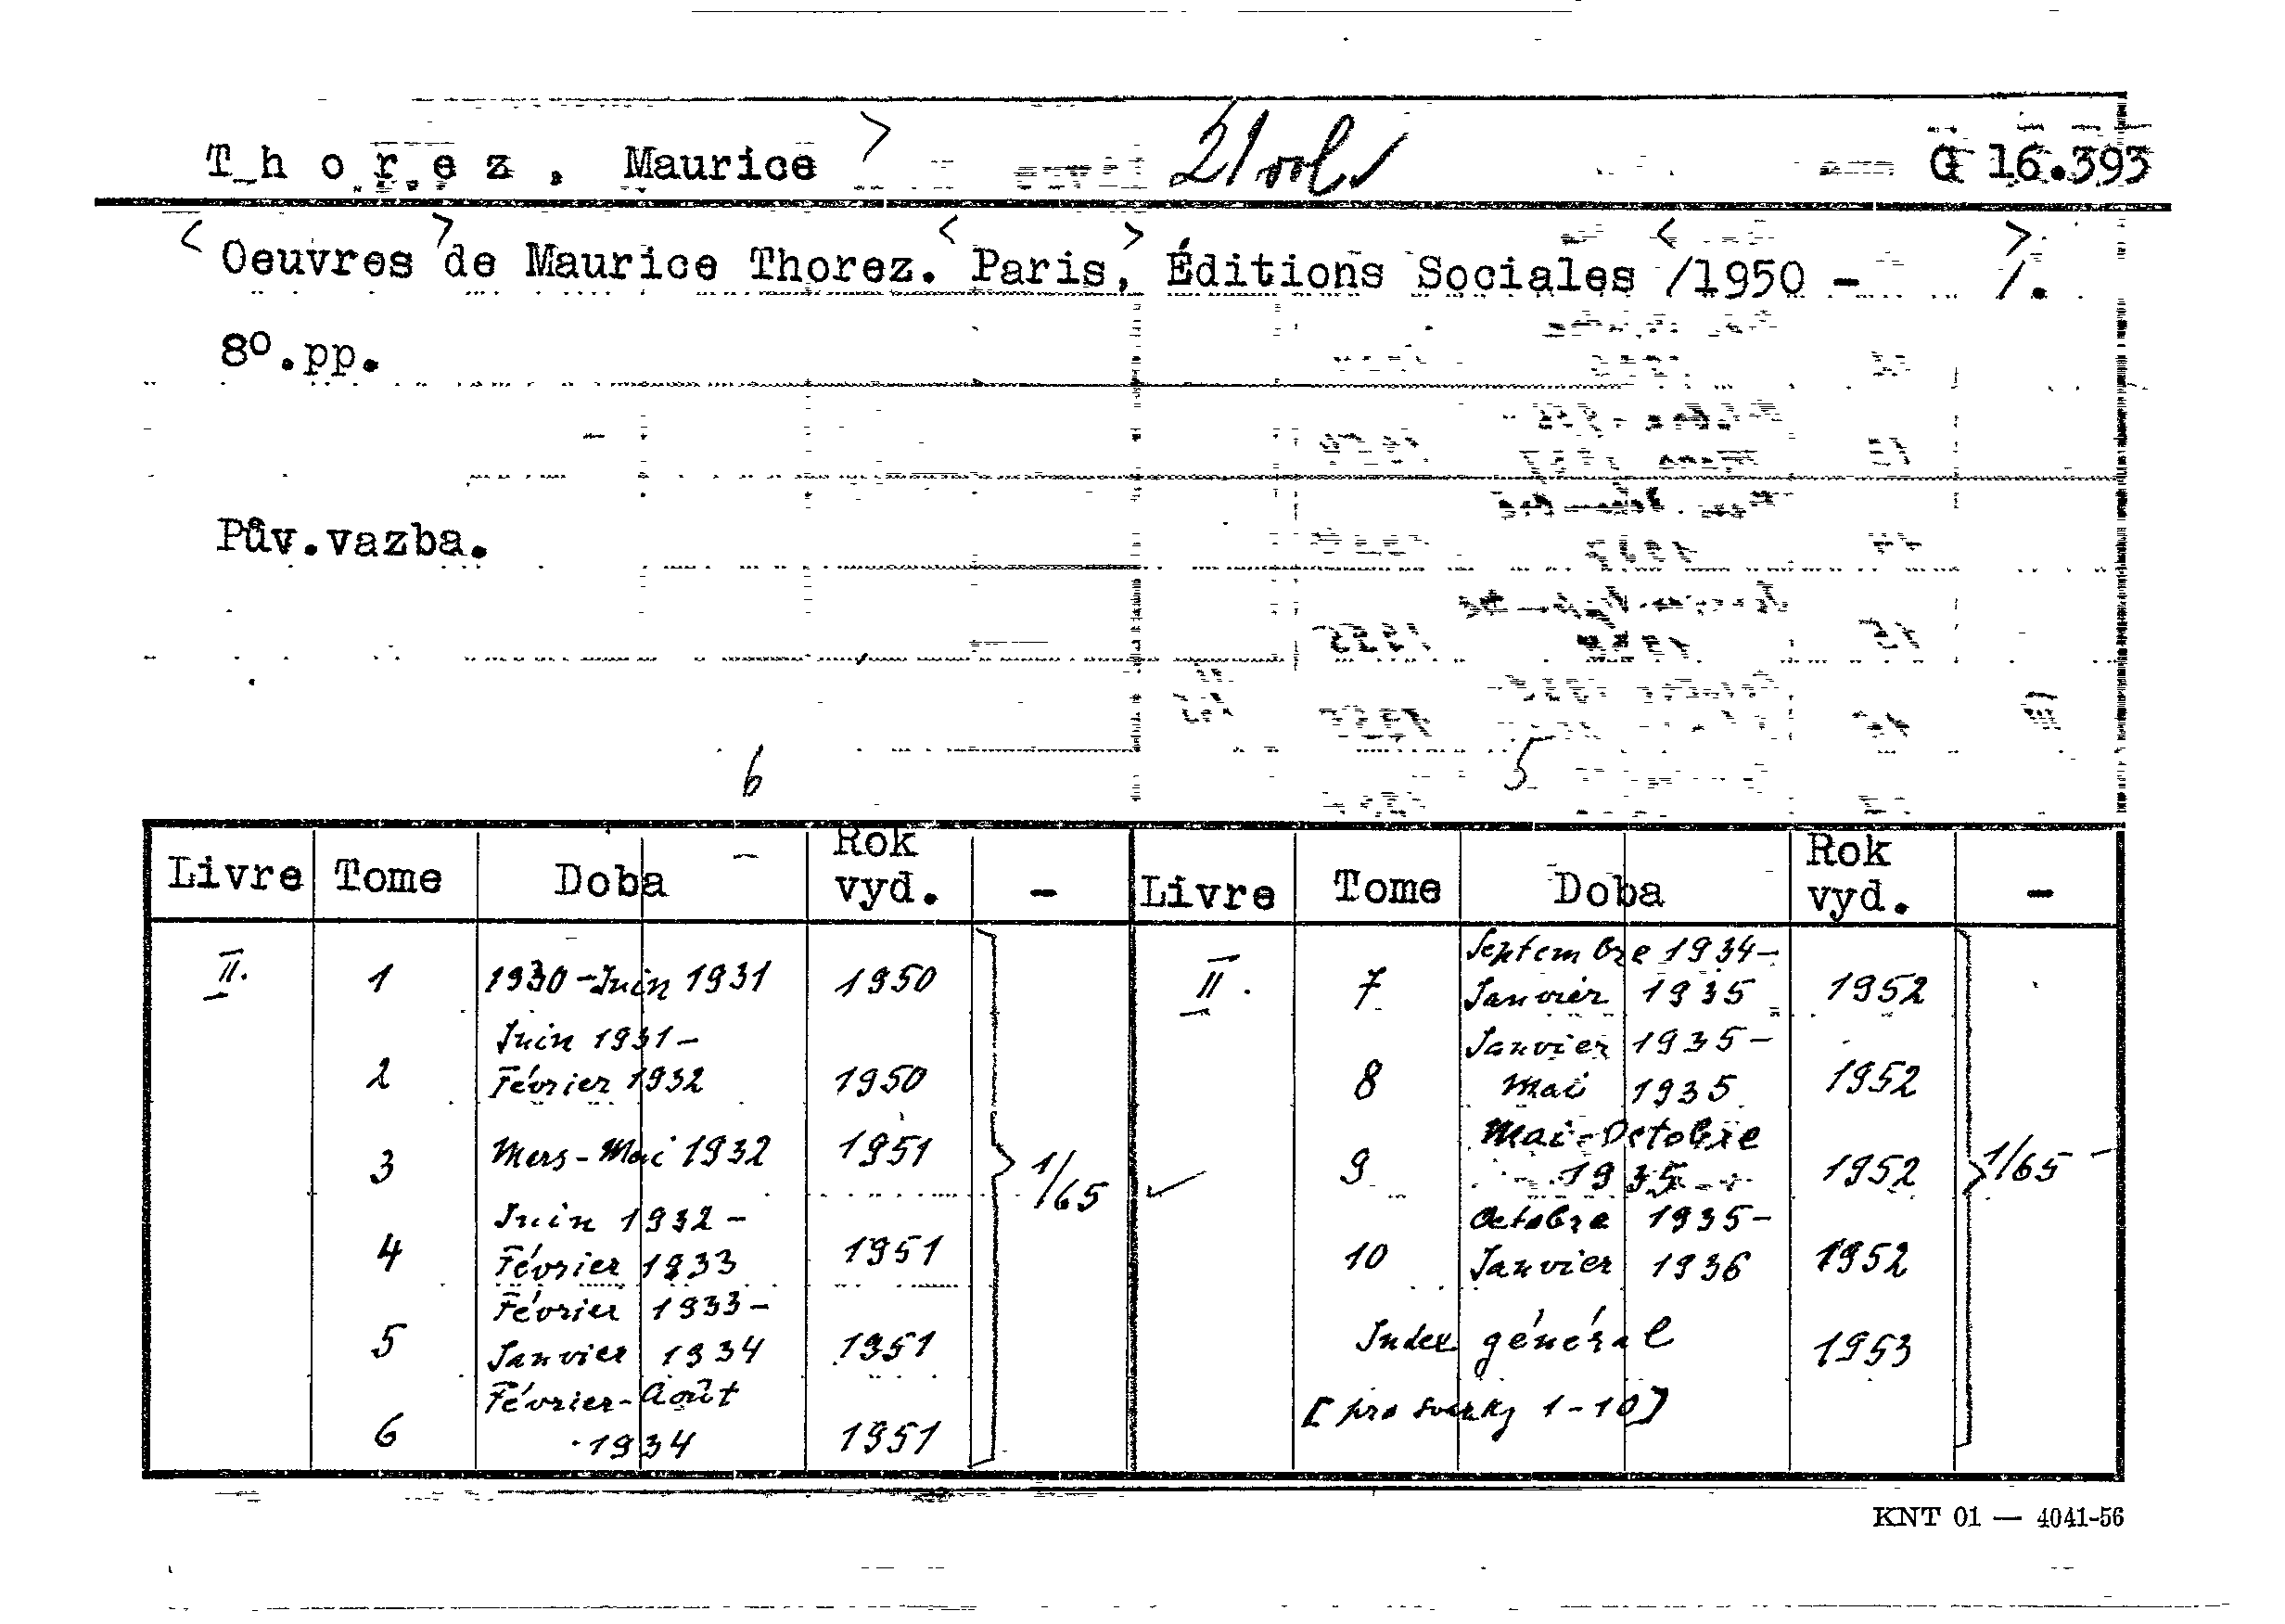 T h o r e z , Maurice > 21 vol. G 16.393
< Oeuvres > de Maurice Thorez. < Paris, > Éditions Sociales < /1950 - > /.
8°.pp.
Pův.vazba.
6 5
Livre Tome Doba Rok vyd. - Livre Tome Doba Rok vyd. -
II. 1 1930-Juin 1931 1950
2 Juin 1931-
Février 1932 1950
3 Mars-Mai 1932 1951
4 Juin 1932-
Février 1933 1951
5 Février 1933-
Janvier 1934 1951
6 Février-Août
1934 1951
1/65
II. 7 Septembre 1934-
Janvier 1935 1952
8 Janvier 1935-
Mai 1935 1952
9 Mai-Octobre
1935 1952
10 Octobre 1935-
Janvier 1936 1952
Index général 1953
[pro svazky 1-10]
1/65
KNT 01 — 4041-56